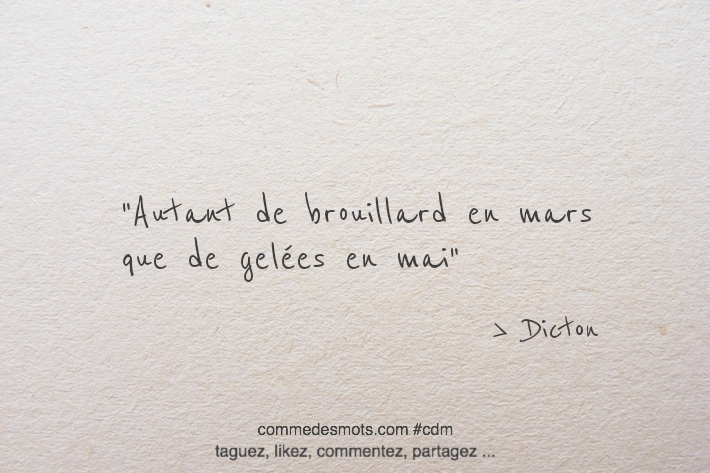 "Autant de brouillard en mars
que de gelées en mai"
> Dicton
commedesmots.com #cdm
taguez, likez, commentez, partagez ...